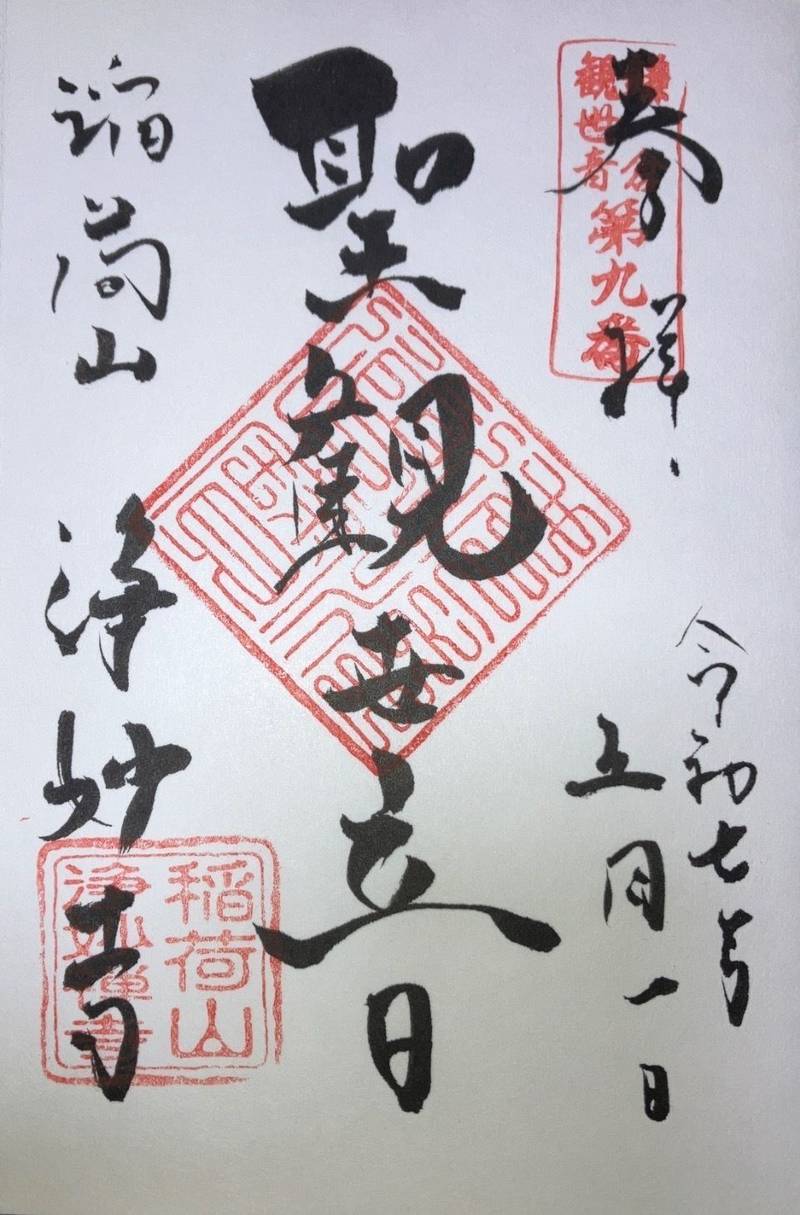 奉拝
鎌倉
観世音
第九番
令和七年
五月一日
聖観世音
稲荷山
浄妙寺
稲荷山
浄妙禅寺